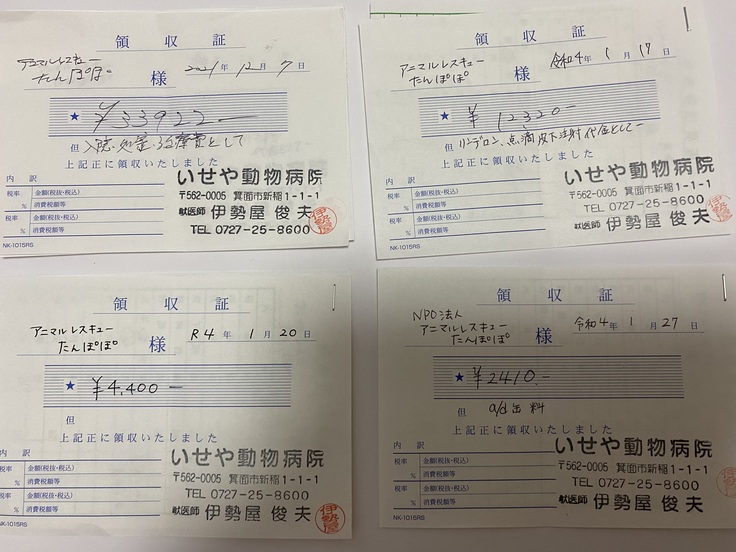 領収証
アニマルレスキュー
たんぽぽ 様
2021年 12月 7日
★ ¥33922—
但 入院・処置・治療費として
上記正に領収いたしました
内訳
税率 金額(税抜・税込)
% 消費税額等
税率 金額(税抜・税込)
% 消費税額等
NK-1015RS
いせや動物病院
〒562-0005 箕面市新稲1-1-1
獣医師 伊勢屋 俊夫
TEL 0727-25-8600
伊勢屋
領収証
アニマルレスキュー
たんぽぽ 様
令和4年 1月 17日
★ ¥12320—
但 リンデロン、点滴 皮下注射代金として
上記正に領収いたしました
内訳
税率 金額(税抜・税込)
% 消費税額等
税率 金額(税抜・税込)
% 消費税額等
NK-1015RS
いせや動物病院
〒562-0005 箕面市新稲1-1-1
TEL 0727-25-8600
獣医師 伊勢屋 俊夫
伊勢屋
領収証
アニマルレスキュー
たんぽぽ 様
R4年 1月 20日
★ ¥4,400—
但
上記正に領収いたしました
内訳
税率 金額(税抜・税込)
% 消費税額等
税率 金額(税抜・税込)
% 消費税額等
NK-1015RS
いせや動物病院
〒562-0005 箕面市新稲1-1-1
TEL 0727-25-8600
獣医師 伊勢屋 俊夫
伊勢屋
領収証
NPO法人
アニマルレスキュー
たんぽぽ 様
令和4年 1月 27日
★ ¥2410.-
但 a/d缶 料
上記正に領収いたしました
内訳
税率 金額(税抜・税込)
% 消費税額等
税率 金額(税抜・税込)
% 消費税額等
NK-1015RS
いせや動物病院
〒562-0005 箕面市新稲1-1-1
TEL 0727-25-8600
獣医師 伊勢屋 俊夫
伊勢屋